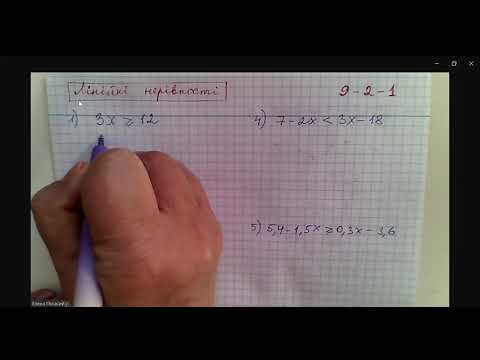 Лінійні нерівності
9-2-1
1) 3x ⩾ 12
4) 7-2x < 3x-18
5) 5,4-1,5x ⩾ 0,3x-3,6